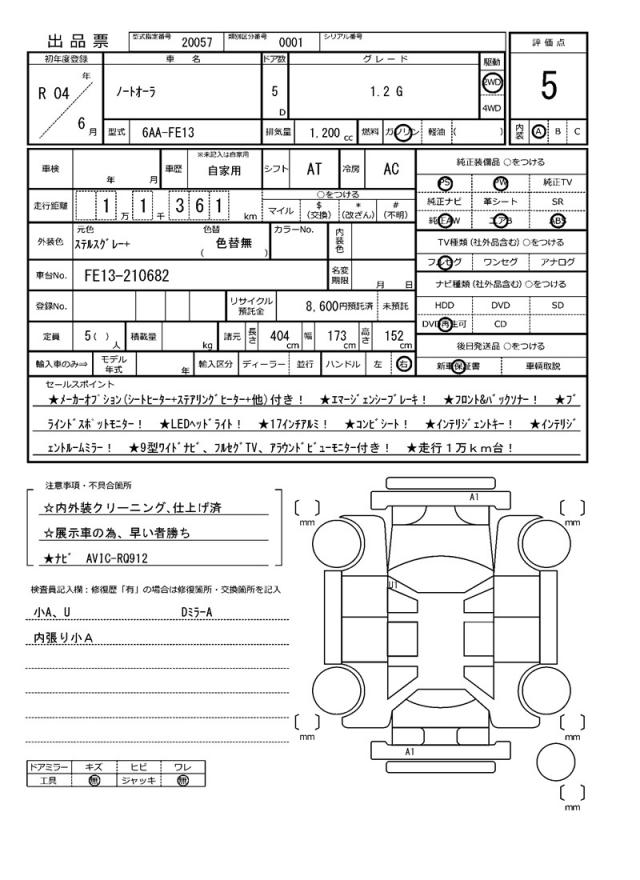 出品票 型式指定番号 20057 類別区分番号 0001 シリアル番号
評価点
初年度登録 車名 ドア数 グレード 駆動
R 04 年 6 月 ノートオーラ 5 D 1.2 G 2WD 4WD
5
型式 6AA-FE13 排気量 1.200 cc 燃料 ガソリン 軽油 ( )
内装 A B C
車検 年 月 車歴 ※未記入は自家用 自家用 シフト AT 冷房 AC
純正装備品 ○をつける
PS PW 純正TV
純正ナビ 革シート SR
純正AW エアB ABS
走行距離 1 万 1 千 3 6 1 km
○をつける
マイル $ (交換) * (改ざん) # (不明)
外装色 元色 ステルスグレー+ 色替 ( 色替無 ) カラーNo. 内装色
TV種類 (社外品含む) ○をつける
フルセグ ワンセグ アナログ
車台No. FE13-210682 名変期限 月 日
ナビ種類 (社外品含む) ○をつける
HDD DVD SD
DVD再生可 CD
登録No. リサイクル預託金 8,600円預託済 未預託
定員 5( ) 人 積載量 kg 諸元 長さ 404 cm 幅 173 cm 高さ 152 cm
後日発送品 ○をつける
新車保証書 車輌取説
輸入車のみ⇒ モデル年式 年 輸入区分 ディーラー 並行 ハンドル 左 右
セールスポイント
★メーカーオプション(シートヒーター+ステアリングヒーター+他)付き! ★エマージェンシーブレーキ! ★フロント&バックソナー! ★ブ
ラインドスポットモニター! ★LEDヘッドライト! ★17インチアルミ! ★コンビシート! ★インテリジェントキー! ★インテリジ
ェントルームミラー! ★9型ワイドナビ、フルセグTV、アラウンドビューモニター付き! ★走行1万km台!
注意事項・不具合箇所
☆内外装クリーニング、仕上げ済
☆展示車の為、早い者勝ち
★ナビ AVIC-RQ912
検査員記入欄:修復歴「有」の場合は修復箇所・交換箇所を記入
小A、U DミラーA
内張り小A
A1
mm
mm
U1
mm
mm
A1
mm
ドアミラー キズ ヒビ ワレ
工具 無 ジャッキ 無